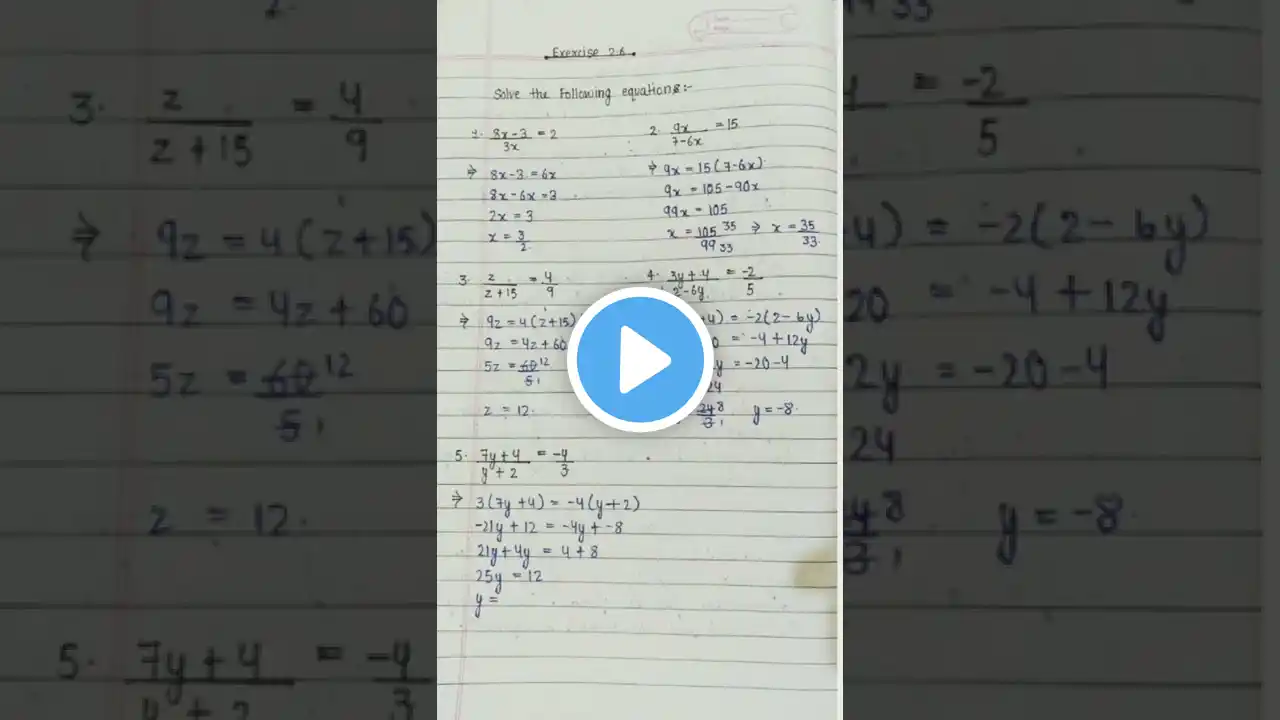 Exercise 2.6
Solve the following equations:-
1. 8x-3/3x = 2
2. 9x/7-6x = 15
⇒ 8x-3 = 6x
8x-6x = 3
2x = 3
x = 3/2
⇒ 9x = 15(7-6x)
9x = 105-90x
99x = 105
x = 105 35/99 33 ⇒ x = 35/33.
3. z/z+15 = 4/9
4. 3y+4/2-6y = -2/5
⇒ 9z = 4(z+15)
9z = 4z+60
5z = 60 12/5 1
z = 12.
+4) = -2(2-6y)
20 = -4+12y
2y = -20-4
24
24 8/3 1 y = -8.
5. 7y+4/y+2 = -4/3
⇒ 3(7y+4) = -4(y+2)
-21y+12 = -4y+-8
21y+4y = 4+8
25y = 12
y =
3. z/z+15 = 4/9
⇒ 9z = 4(z+15)
9z = 4z+60
5z = 60 12/5 1
z = 12.
5. 7y+4/y+2 = -4/3
= -2/5
4) = -2(2-6y)
20 = -4+12y
2y = -20-4
24
24 8/3 1 y = -8.